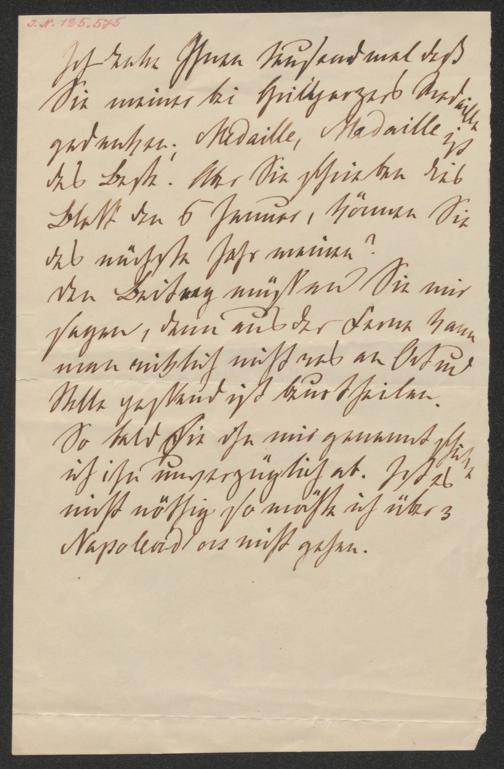 I.N. 125.575
Ich danke Ihnen tausendmal daß
Sie meiner bei Grillparzers Medaille
gedenken. Medaille, Medaille ist
das Beste. Aber Sie schrieben dies
Blatt den 5 Januar, können Sie
das nächste Jahr meinen?
Den Beitrag müssen Sie mir
sagen, denn aus der Ferne kann
man nicht was an Ort und
Stelle gestand ist beurtheilen.
So bald Sie ihn mir genannt schicke
ich ihn unverzüglich ab. Ist es
nicht nöthig so möchte ich über 3
Napoleond'ors nicht gehen.